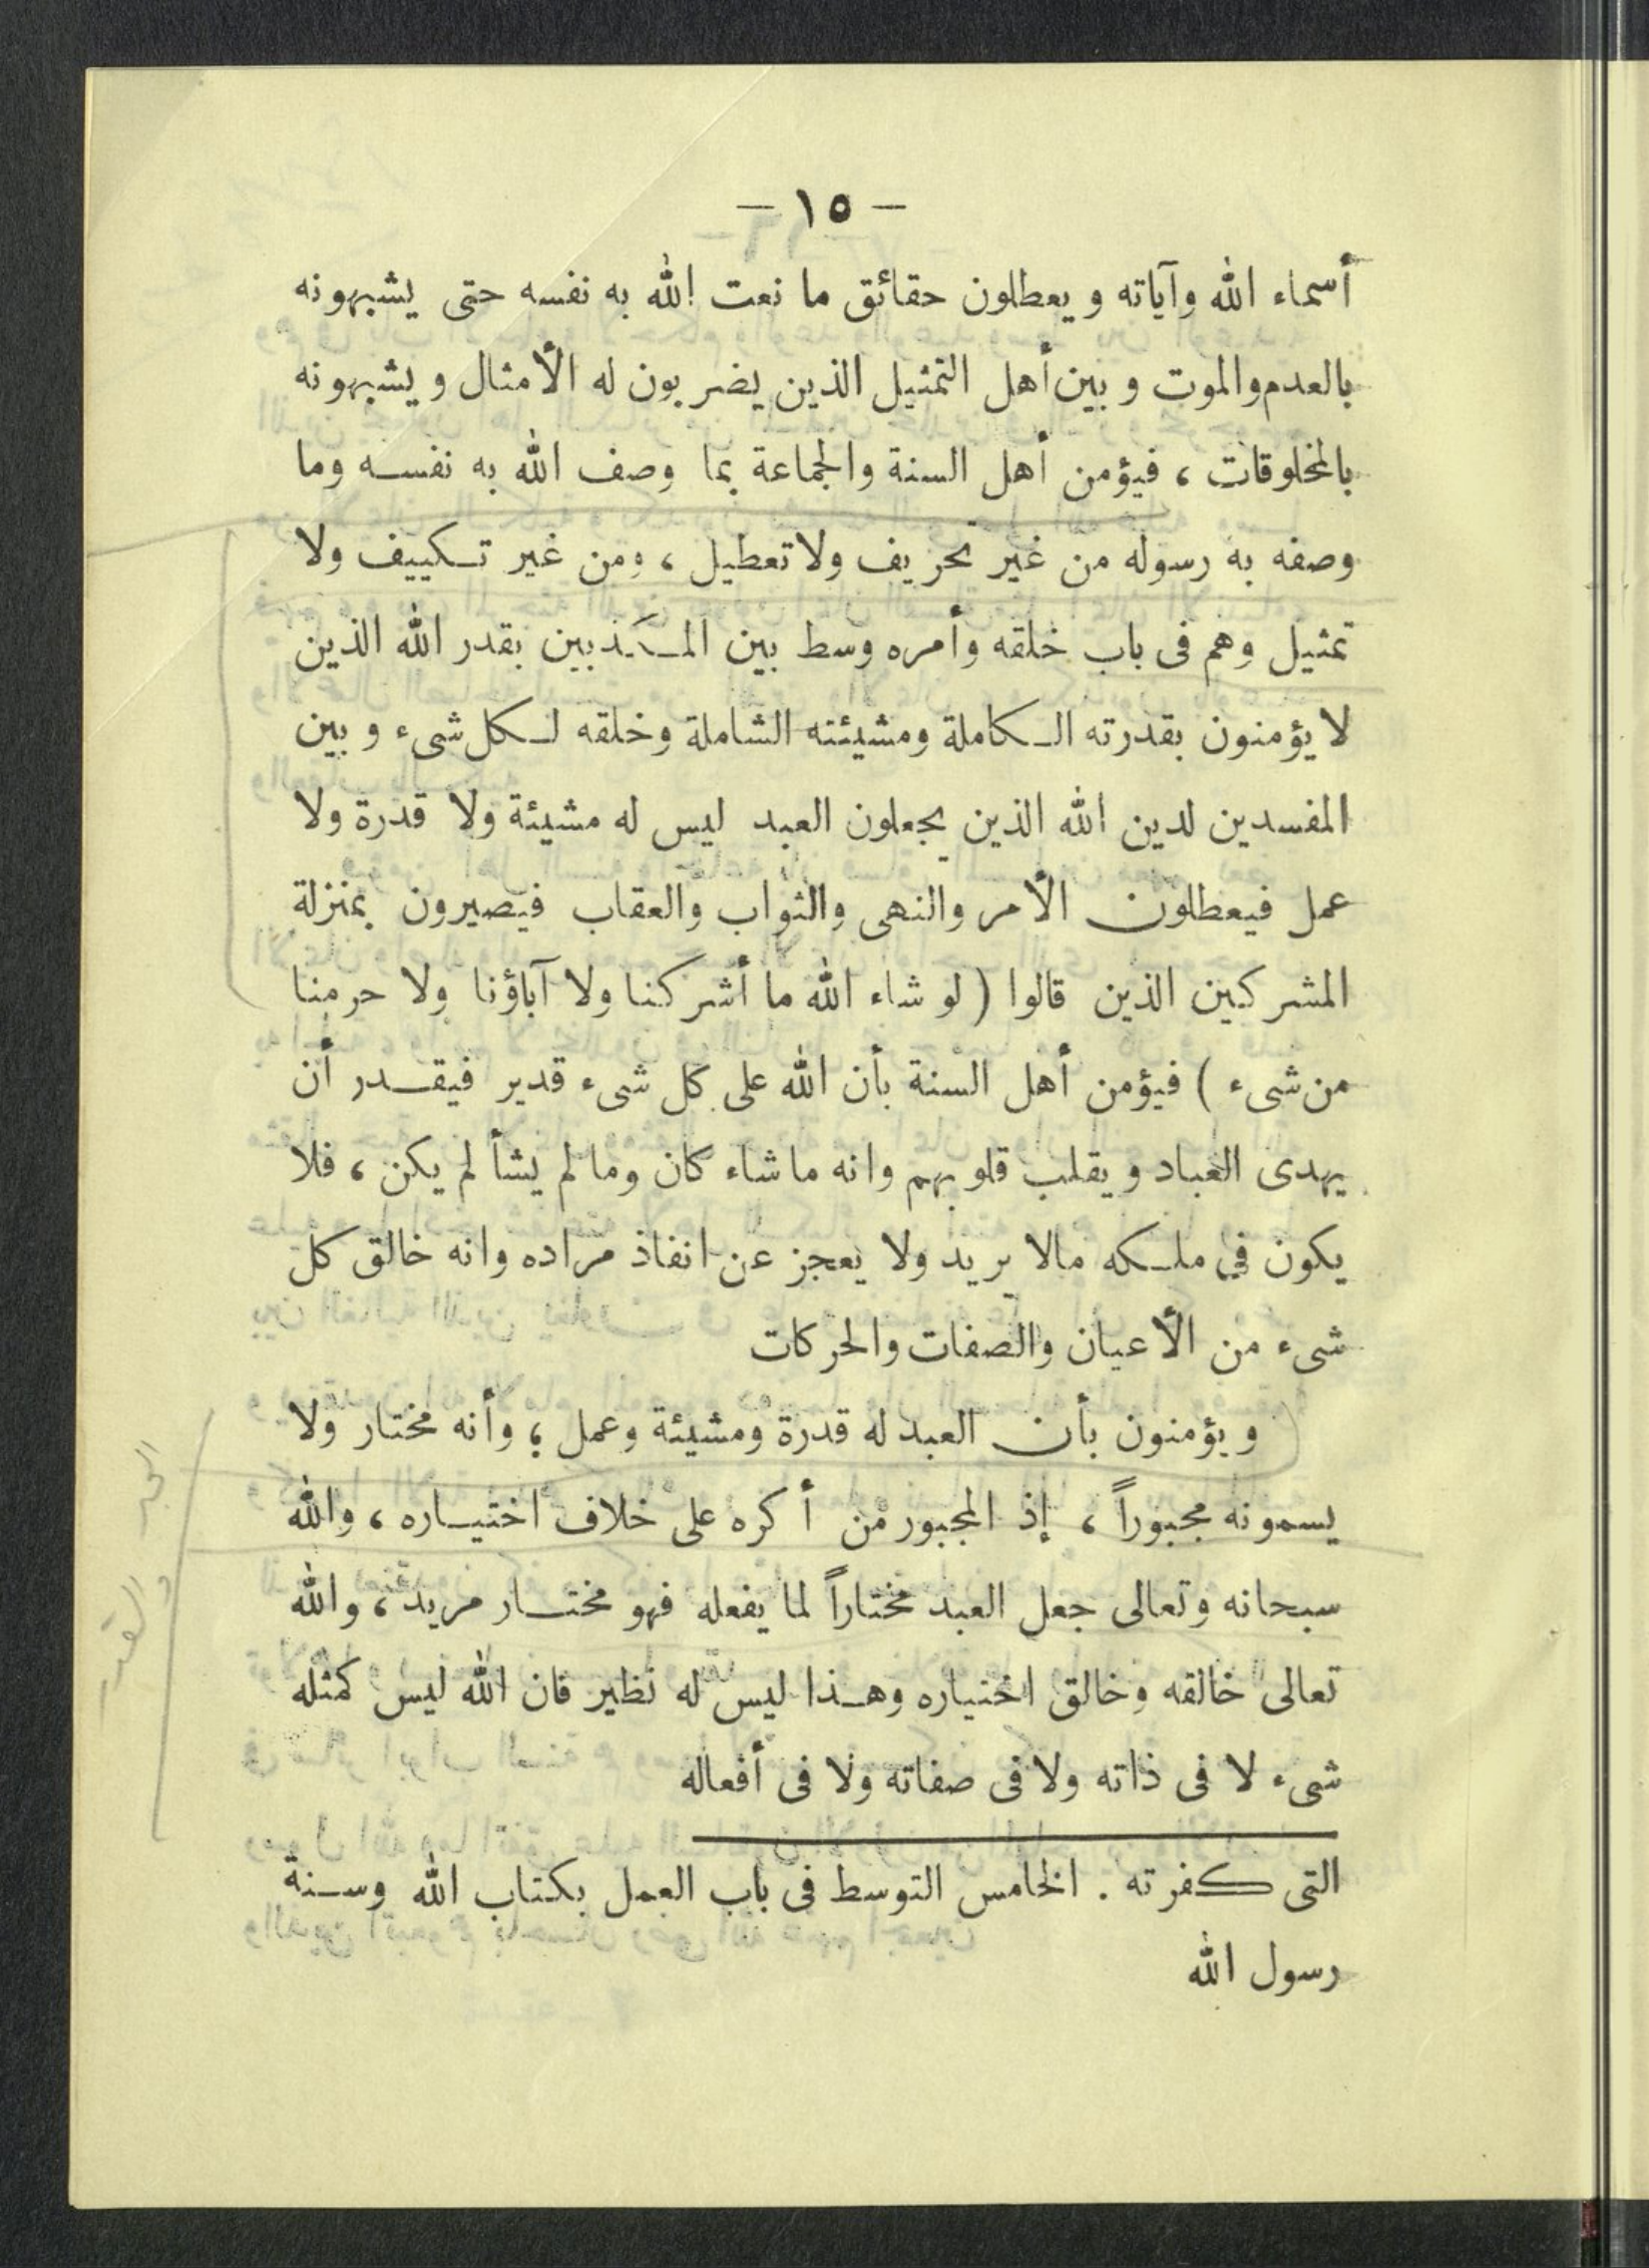 — ١٥ —
أسماء الله وآياته ويعطلون حقائق ما نعت الله به نفسه حتى يشبهونه
بالعدم والموت وبين أهل التمثيل الذين يضربون له الأمثال ويشبهونه
بالمخلوقات ، فيؤمن أهل السنة والجماعة بما وصف الله به نفسه وما
وصفه به رسوله من غير تحريف ولا تعطيل ، ومن غير تكييف ولا
تمثيل وهم فى باب خلقه وأمره وسط بين المكذبين بقدر الله الذين
لا يؤمنون بقدرته الكاملة ومشيئته الشاملة وخلقه لكل شىء وبين
المفسدين لدين الله الذين يجعلون العبد ليس له مشيئة ولا قدرة ولا
عمل فيعطلون الأمر والنهى والثواب والعقاب فيصيرون بمنزلة
المشركين الذين قالوا ( لو شاء الله ما أشركنا ولا آباؤنا ولا حرمنا
من شىء ) فيؤمن أهل السنة بأن الله على كل شىء قدير فيقدر أن
يهدى العباد ويقلب قلوبهم وانه ما شاء كان وما لم يشأ لم يكن ، فلا
يكون في ملكه مالا يريد ولا يعجز عن انفاذ مراده وانه خالق كل
شىء من الأعيان والصفات والحركات
ويؤمنون بأن العبد له قدرة ومشيئة وعمل ، وأنه مختار ولا
يسمونه مجبوراً ، إذ المجبور من أكره على خلاف اختياره ، والله
سبحانه وتعالى جعل العبد مختاراً لما يفعله فهو مختار مريد ، والله
تعالى خالقه وخالق اختياره وهذا ليس له نظير فان الله ليس كمثله
شىء لا فى ذاته ولا فى صفاته ولا فى أفعاله
التى كفرته . الخامس التوسط فى باب العمل بكتاب الله وسنة
رسول الله